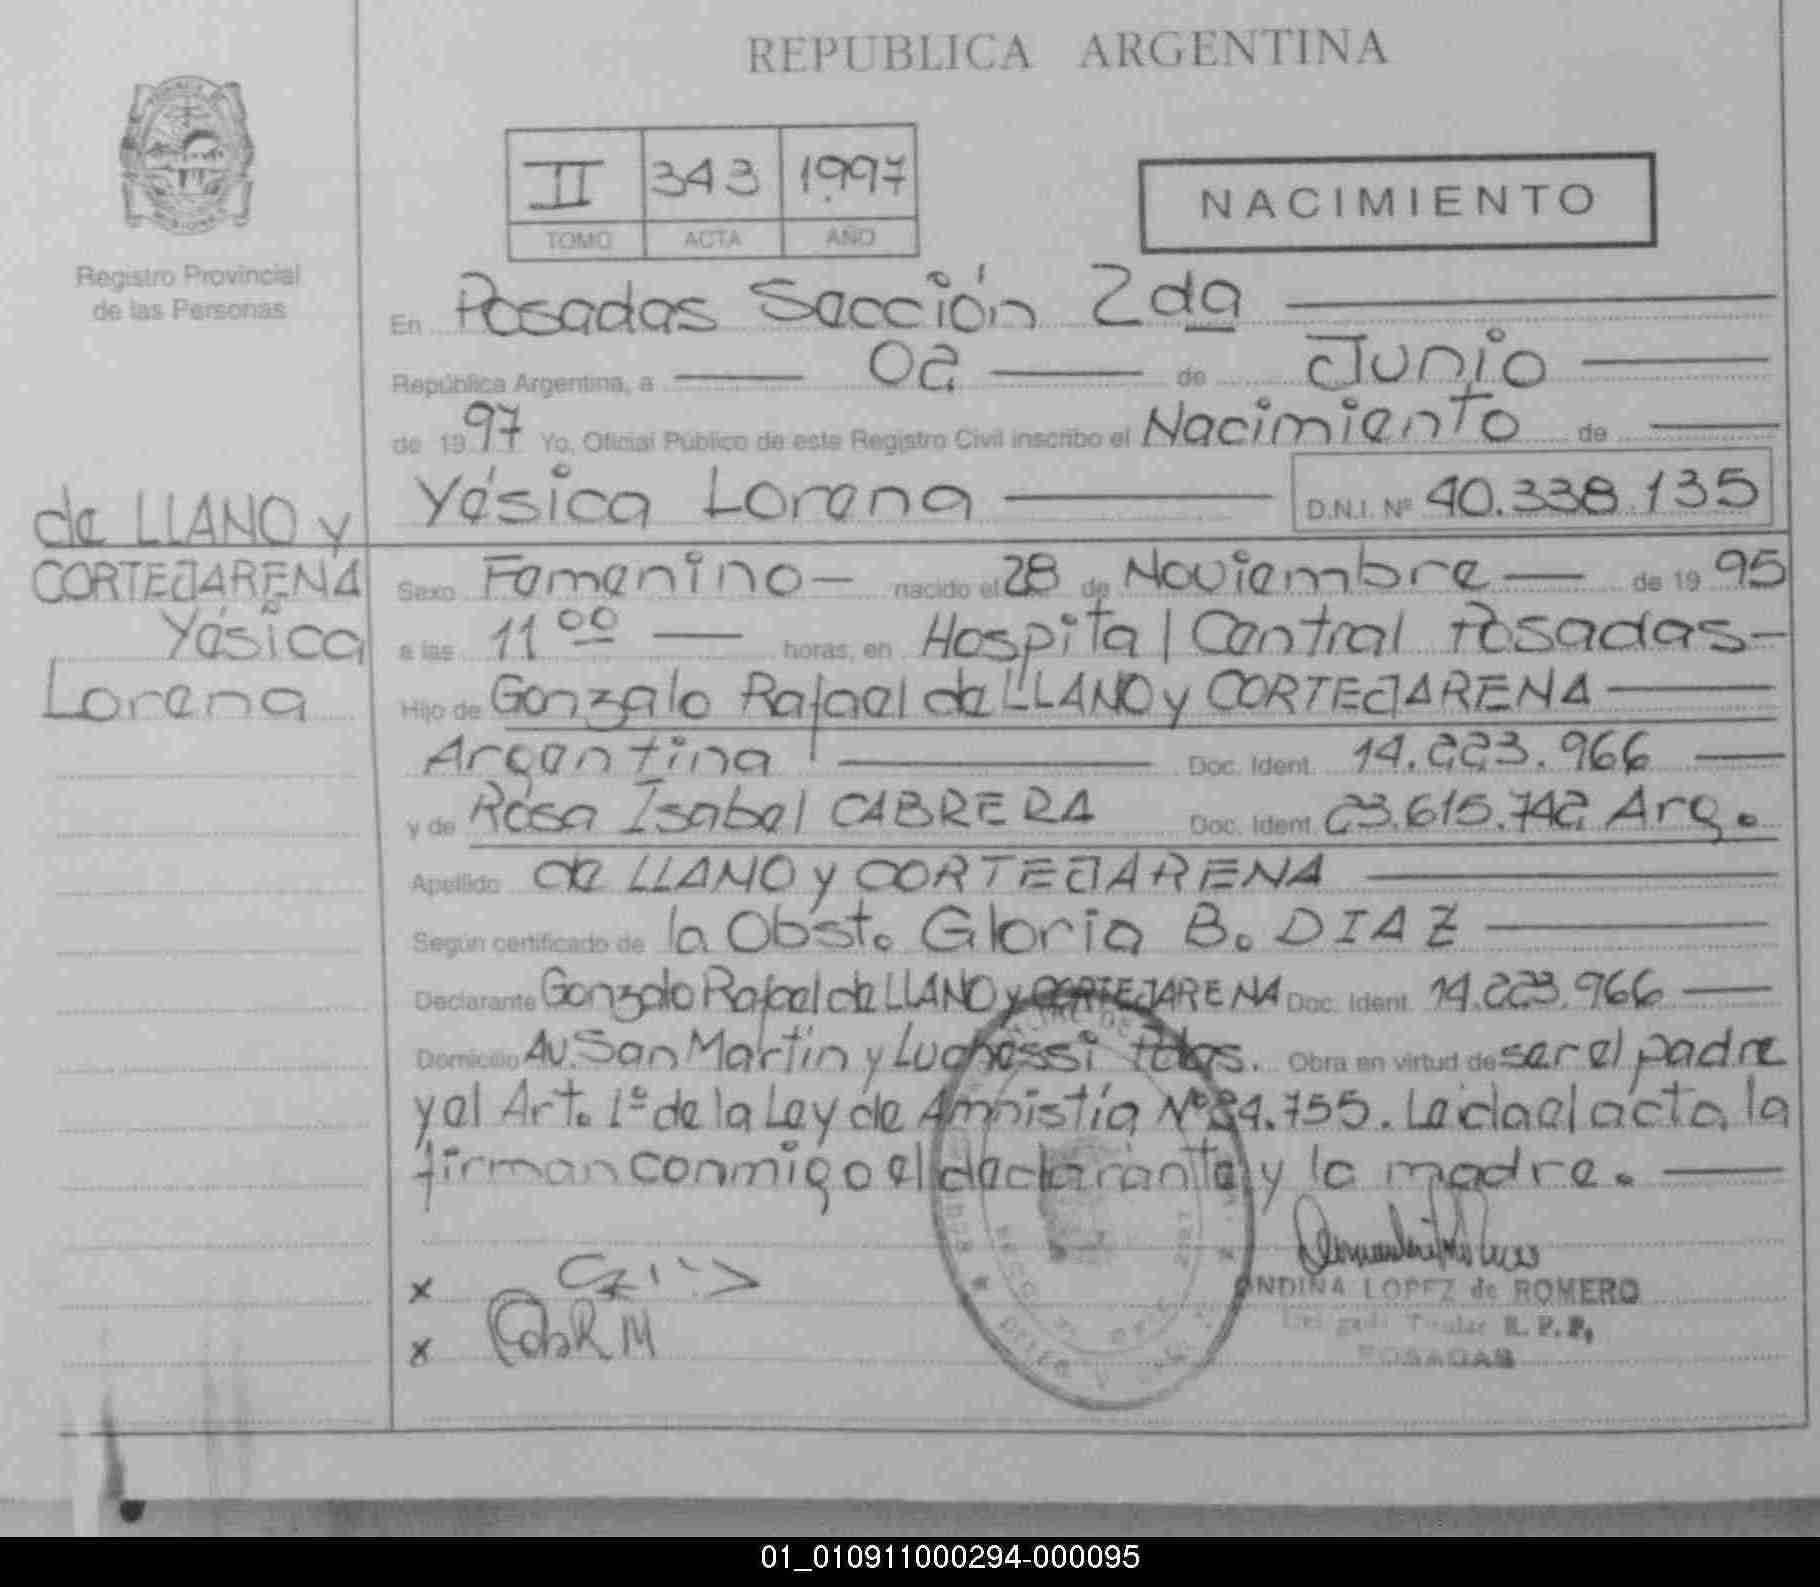 REPUBLICA ARGENTINA
II 343 1997
TOMO ACTA AÑO
NACIMIENTO
Registro Provincial
de las Personas
En Posadas Sección 2da
República Argentina, a 02 de Junio
de 1997 Yo, Oficial Público de este Registro Civil inscribo el Nacimiento de
Yésica Lorena D.N.I. Nº 40.338.135
de LLANO y
CORTEJARENA
Yésica
Lorena
Sexo Femenino nacido el 28 de Noviembre de 1995
a las 11 00 horas, en Hospital Central Posadas
Hijo de Gonzalo Rafael de LLANO y CORTEJARENA
Argentina Doc. Ident. 14.223.966
y de Rosa Isabel CABRERA Doc. Ident. 23.615.742 Arg.
Apellido de LLANO y CORTEJARENA
Según certificado de la Obst. Gloria B. DIAZ
Declarante Gonzalo Rafael de LLANO y CORTEJARENA Doc. Ident. 14.223.966
Domicilio Av. San Martín y Luchessi Pdas. Obra en virtud de ser el padre
y el Art. 1º de la Ley de Amnistía Nº 24.755. Leída el acta, la
firman conmigo el declarante y la madre.
x
x
ONDINA LOPEZ de ROMERO
Titular R. P. P.
POSADAS
01_010911000294-000095